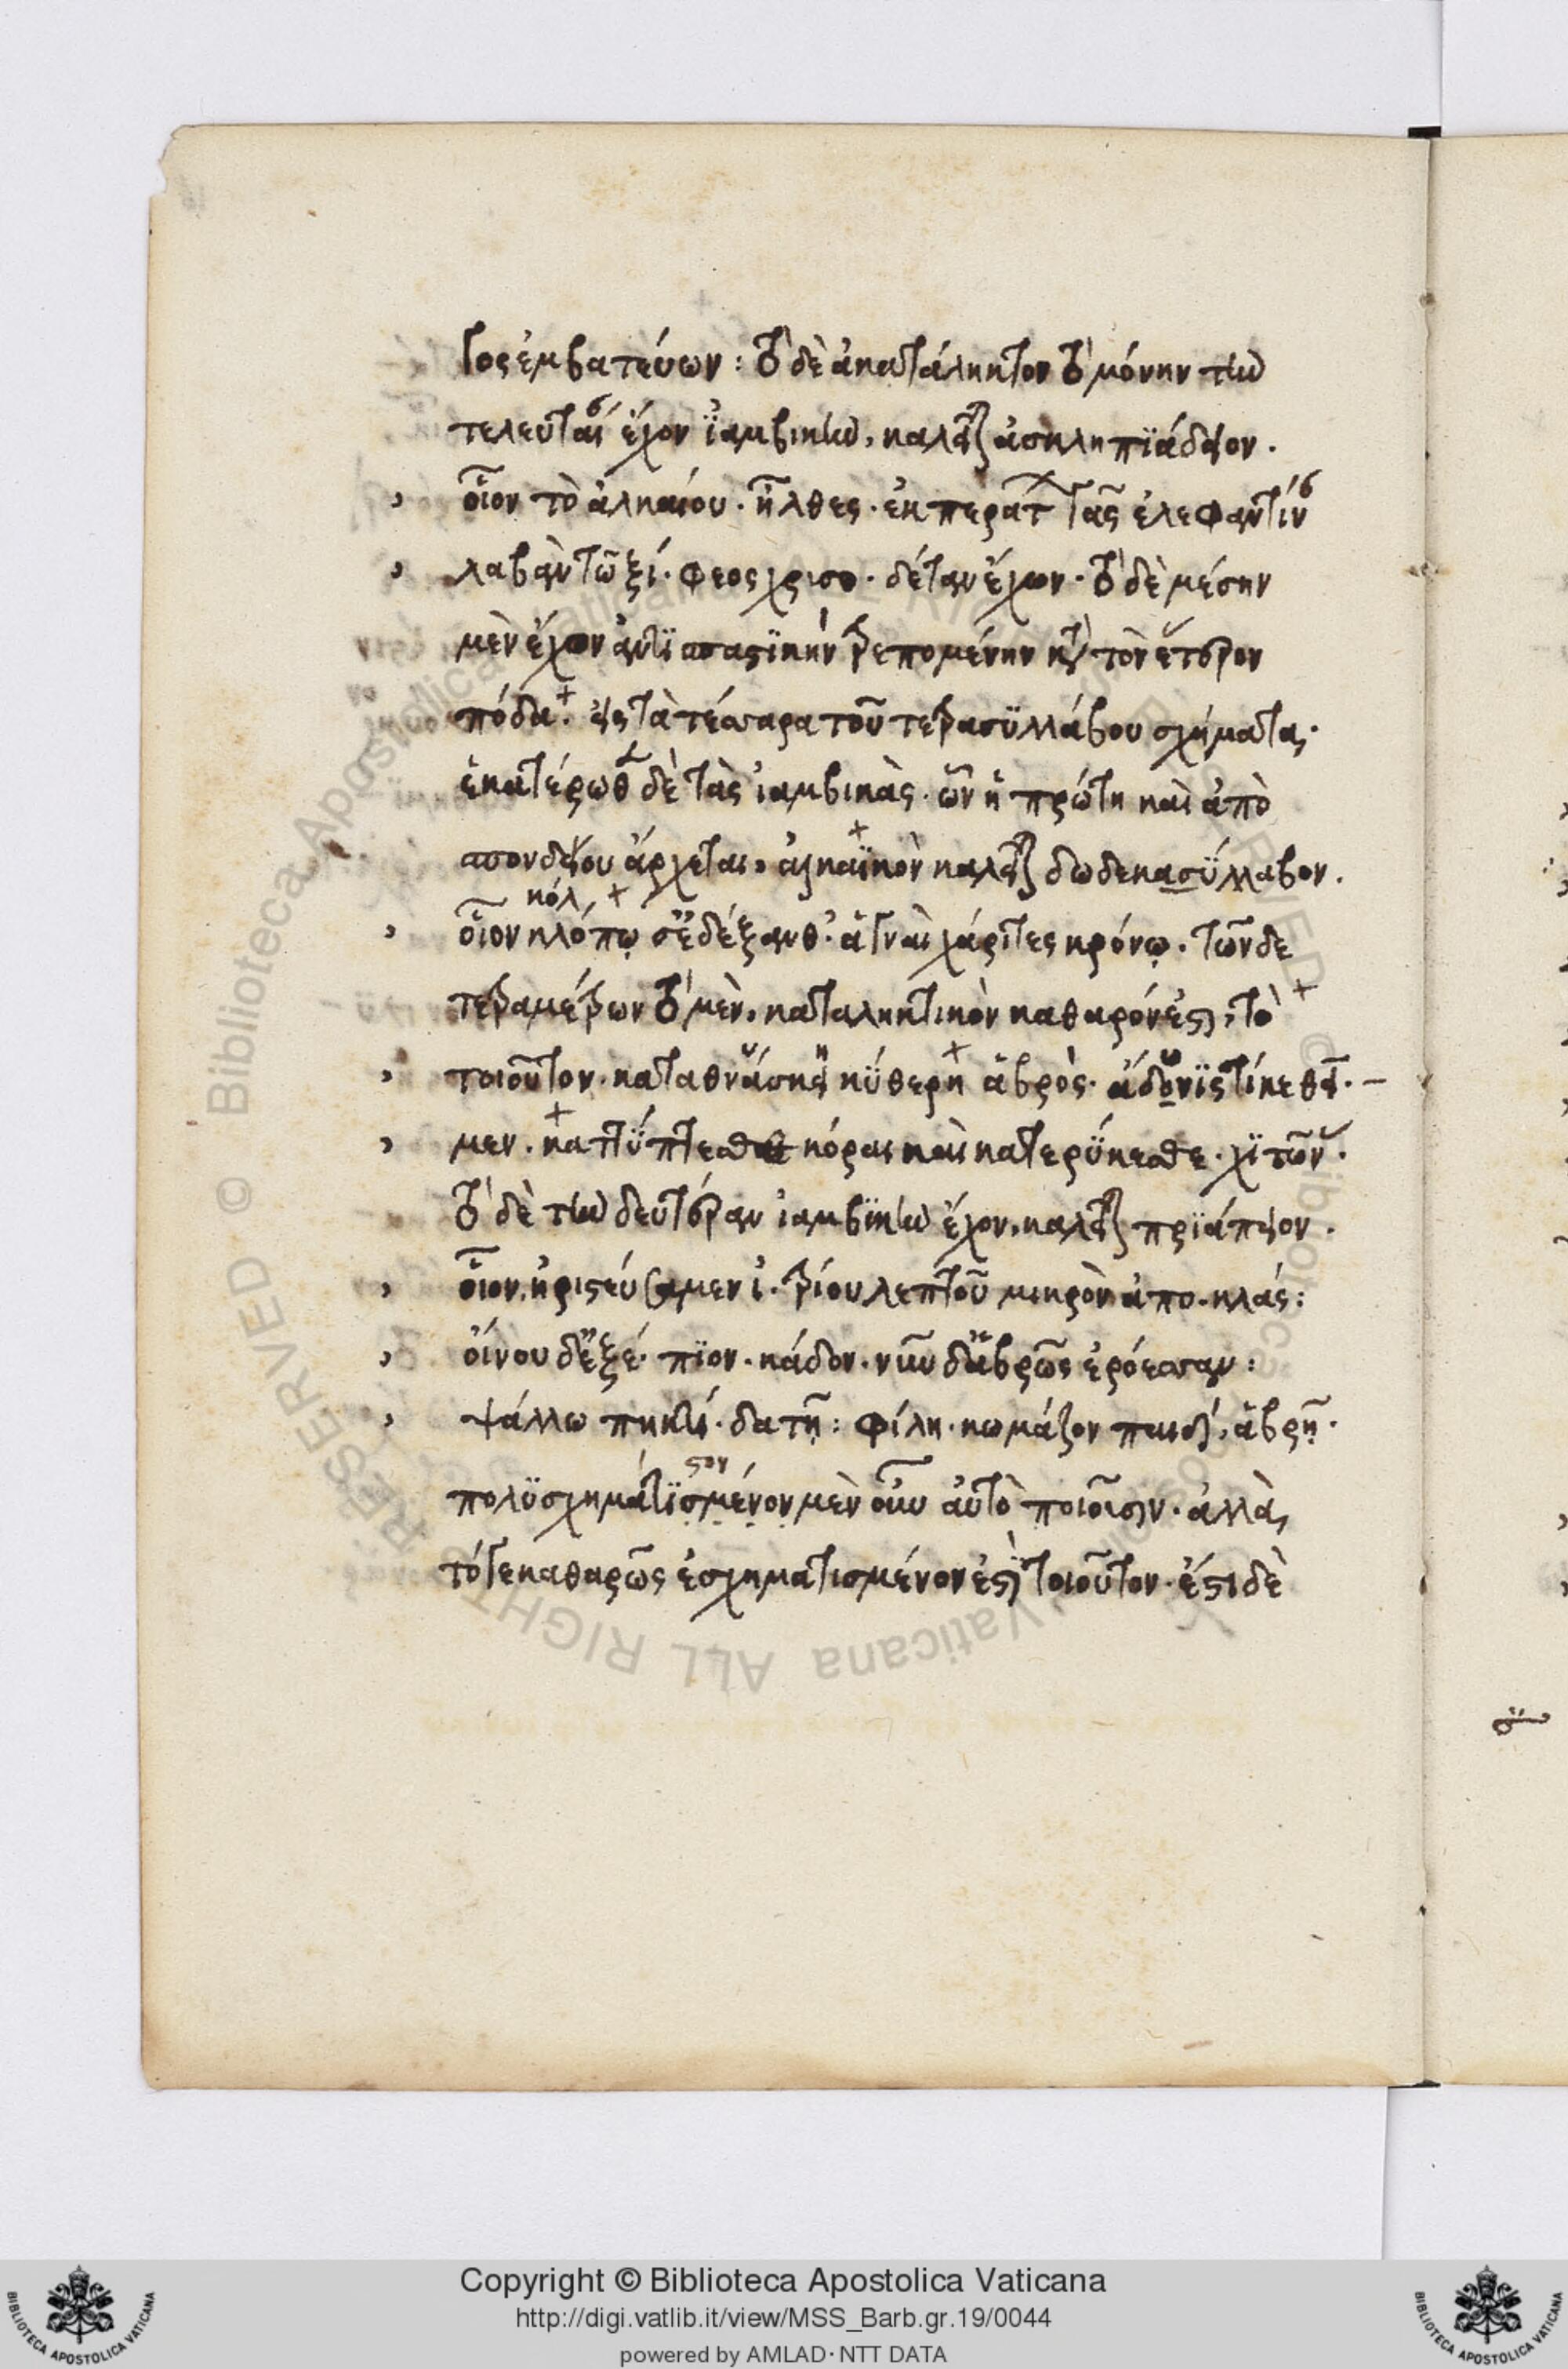 γος ἐμβατεύων : τὸ δὲ ἀκατάληκτον τὸ μόνην τὴν
τελευταί ἔχον ἰαμβικὴν, καλεῖται ἀσκληπϊάδειον .
οἷον τὸ ἀλκαίου . ἦλθες . ἐκ περάτ γᾶς ἐλεφαντίν
λαβὰν τῶ ξί . φεος χρισο . δέταν ἔχων . τὸ δὲ μέσην
μὲν ἔχον ἀντϊσπαστϊκὴν τρεπομένην κατὰ τὸν ἕτερον
πόδα . εἰς τὰ τέσσαρα τοῦ τετρασϋλλάβου σχήματα,
ἑκατέρωθεν δὲ τὰς ἰαμβικὰς . ὧν ἡ πρώτη καὶ ἀπὸ
σπονδείου ἄρχεται, ἀλκαϊκὸν καλεῖται δωδεκασϋλλαβον .
κόλ
οἷον κλόπῳ σἐδέξανθ' ἁγναὶ χάριτες κρόνῳ . τῶν δε
τετραμέτρων τὸ μὲν, καταληκτικὸν καθαρόν ἐστι, τὸ
τοιοῦτον . καταθνάσκει κϋθερη ἁβρὸς . ἄδονϊς τίκε θεῖ . –
μεν . καττϋπτεσθε κόραι καὶ κατερϋκεσθε . χϊτῶν .
τὸ δὲ τὴν δευτέραν ἰαμβϊκὴν ἔχον, καλεῖται πρϊάπειον .
οἷον, ἠριστευσαμεν ἰ . τρίου λεπτοῦ μικρὸν ἀπο . κλάς :
οἴνου δἐξέ . πϊον . κάδον . νῦν δἁβρῶς ἐρόεσσαν :
ψάλλω πηκτί . δα τῆ : φίλη . κωμάζον παιδί, ἁβρῇ .
στον
πολϋσχημάτϊσμένον μὲν οὖν αὐτὸ ποιοῦσιν . ἀλλὰ,
τό γε καθαρῶς ἐσχηματισμένον ἐστὶ τοιοῦτον . ἔστι δὲ
Copyright © Biblioteca Apostolica Vaticana
http://digi.vatlib.it/view/MSS_Barb.gr.19/0044
powered by AMLAD·NTT DATA